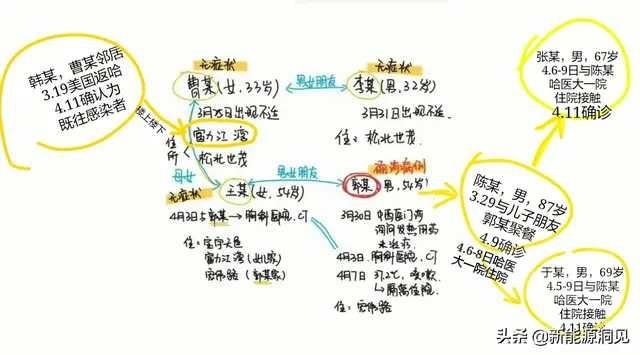 韩某，曹某邻居
3.19美国返哈
4.11确认为
既往感染者
楼上楼下
无症状
曹某(女，33岁)
男女朋友
无症状
李某(男，32岁)
3月31日出现不适
住：松北世茂
住所
富力江湾
松北世茂
母女
无症状
王某(女，54岁)
男女朋友
确诊病例
郭某(男，54岁)
4月3日与郭某→胸科医院，CT
富力江湾
宏伟路(郭某家)
4月3日，胸科医院，CT
4月7日 37.2℃，咳嗽
↳隔离住院
住：宏伟路
张某，男，67岁
4.6-9日与陈某
哈医大一院
住院接触
4.11确诊
陈某，男，87岁
3.29与儿子朋友
郭某聚餐
4.9确诊
4.6-8日哈医
大一院住院
于某，男，69岁
4.5-9日与陈某
哈医大一院
住院接触
4.11确诊
头条 @新能源洞见